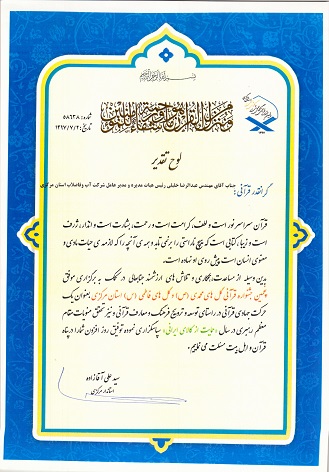 بسم الله الرحمن الرحیم
شماره: ۵۸۶۳۸
تاریخ: ۱۳۹۷/۷/۲
لوح تقدیر
جناب آقای مهندس عبدالرضا خلیلی رئیس هیات مدیره و مدیر عامل شرکت آب و فاضلاب استان مرکزی
گرانقدر قرآنی؛
قرآن سراسر نور است و لطف، کرامت است و رحمت، بشارت است و انذار، ژرف
است و زیبا، کتابی است که هیچ ناراستی را برنمی تابد و هدی آنچه را که لازمه ی حیات مادی و
معنوی انسان است پیش روی او نهاده است.
بدین وسیله از مساعدت، همکاری و تلاش های ارزشمند جنابعالی در کمک به برگزاری موفق
پنجمین جشنواره قرآنی گل های محمدی (ص) و گل های فاطمی (س) استان مرکزی بعنوان یک
حرکت جهادی قرآنی در راستای توسعه و ترویج فرهنگ و معارف قرآنی و نیز تحقق منویات مقام
معظم رهبری در سال «حمایت از کالای ایرانی» سپاسگزاری نموده توفیق روز افزون شما را در پناه
قرآن و اهل بیت مسئلت می نماییم.
سید علی آقازاده
استاندار مرکزی